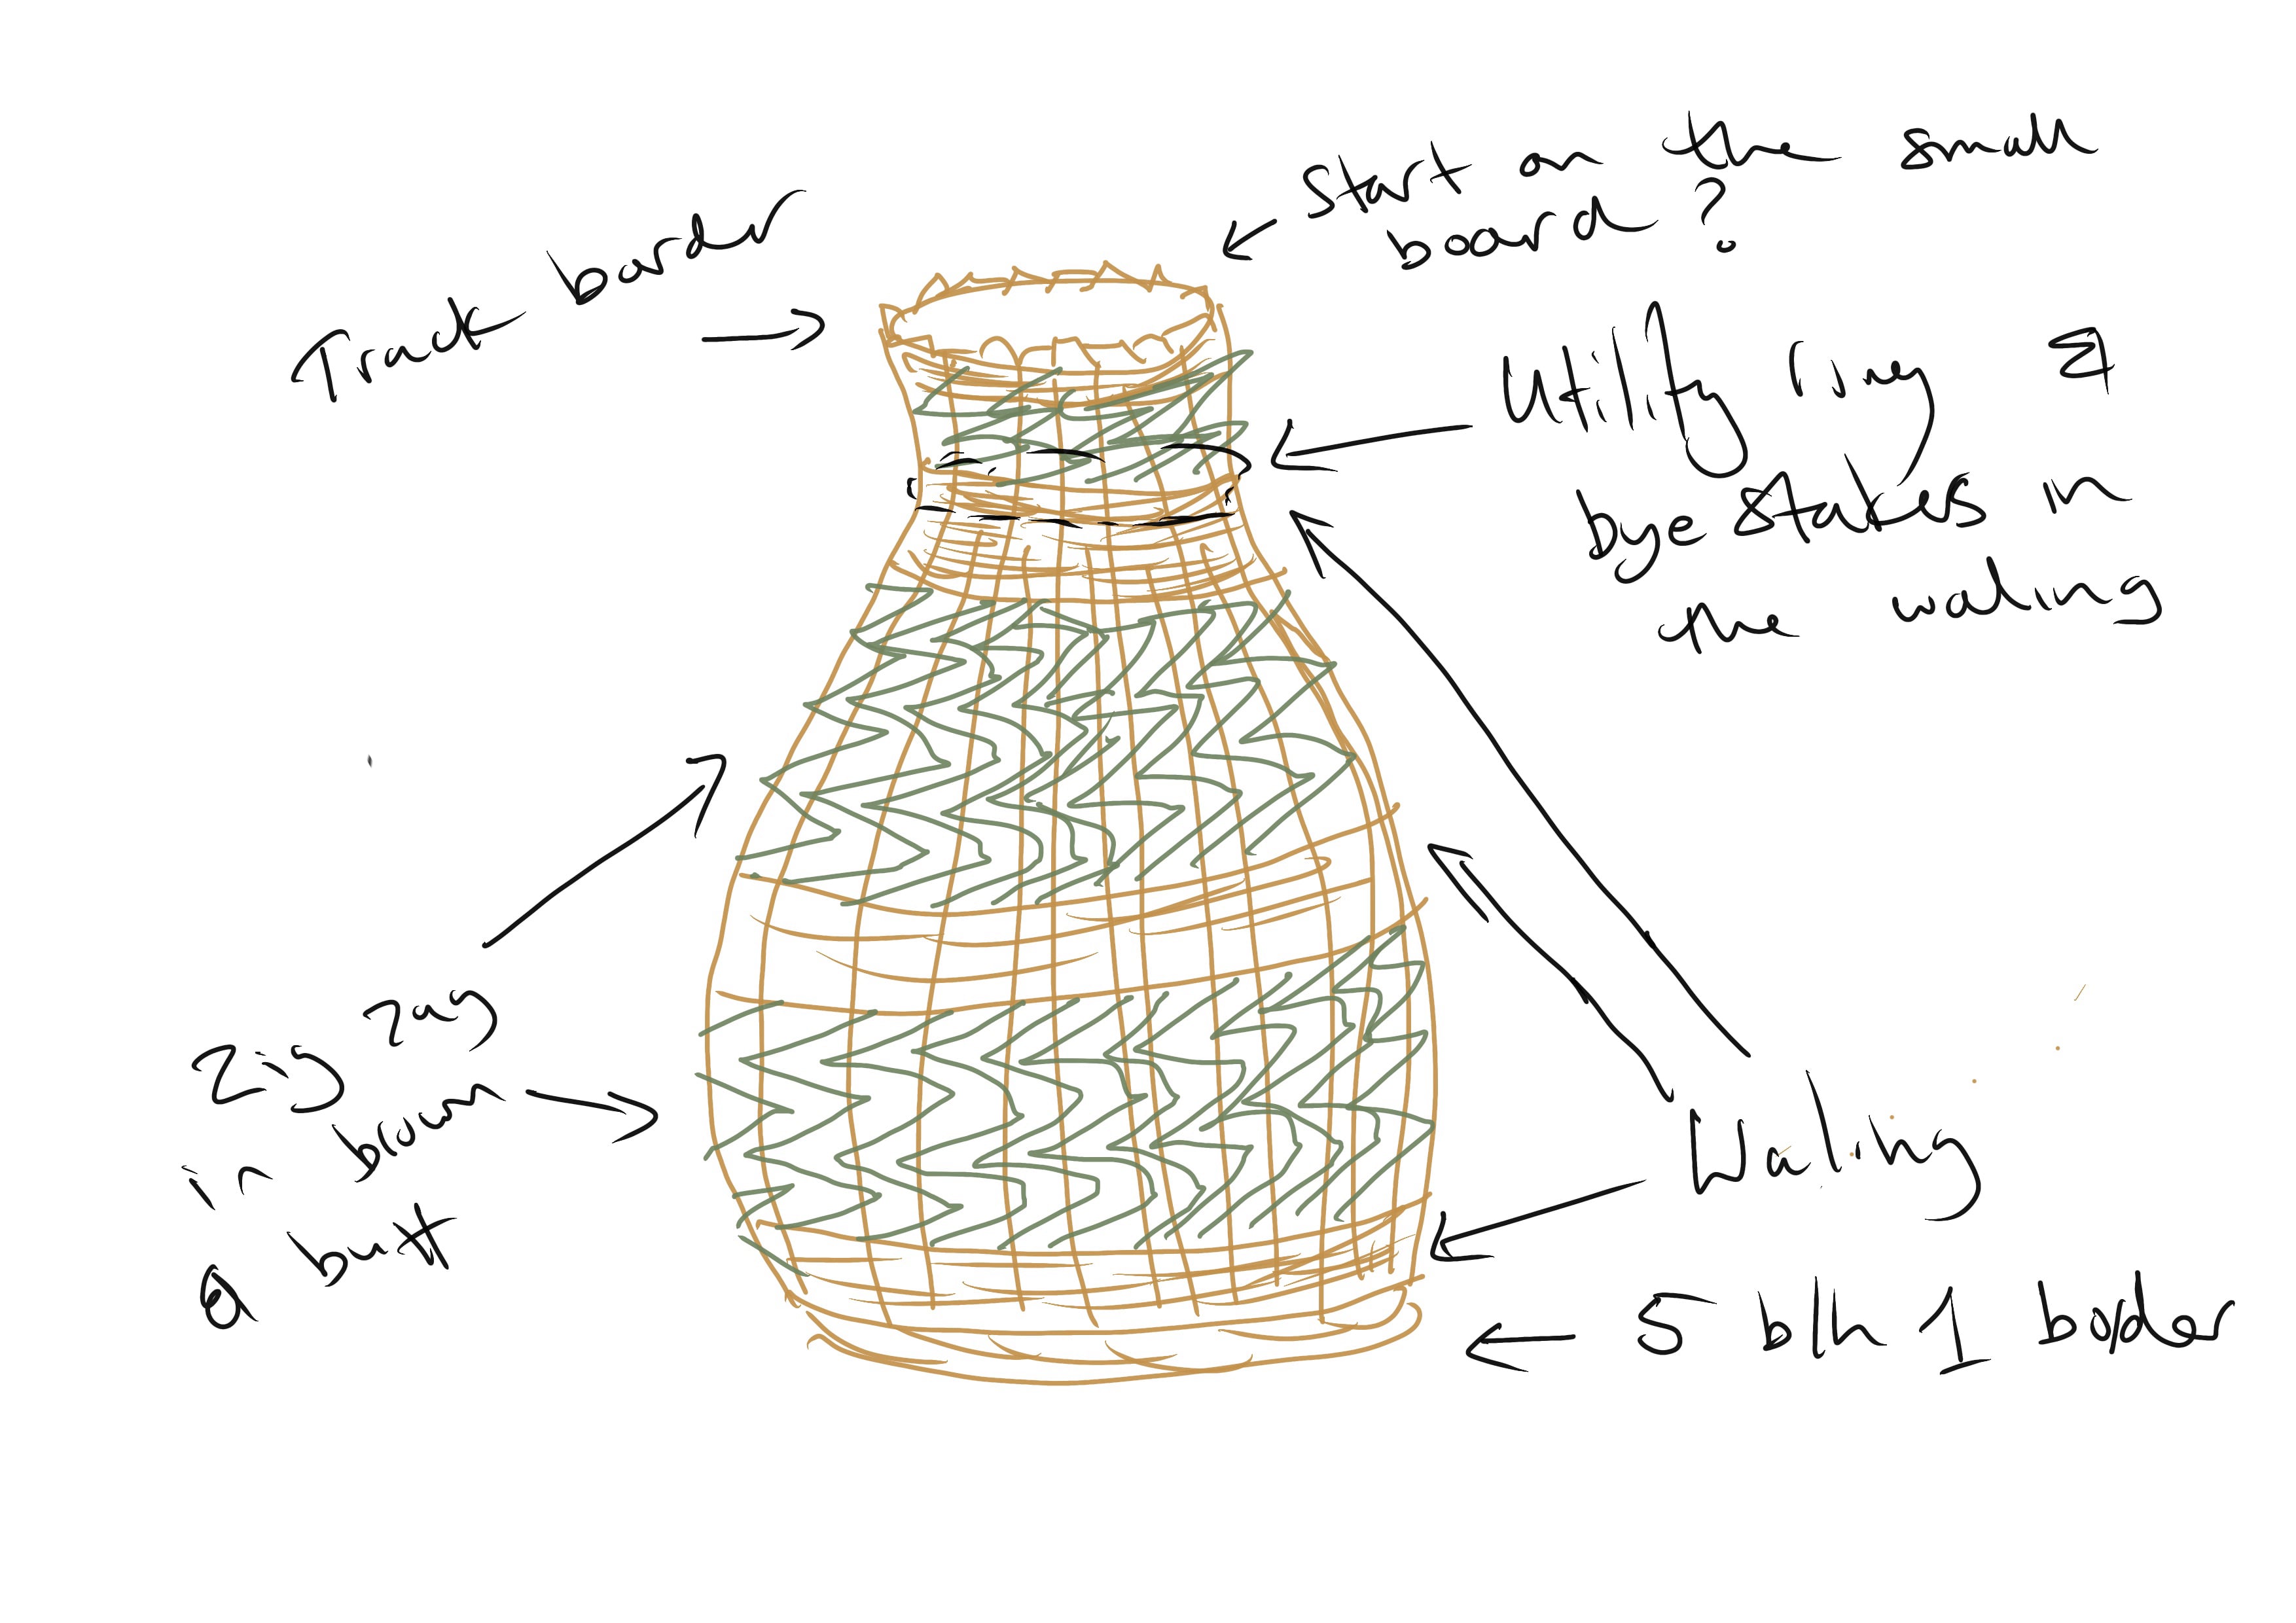 Start on the small
board ?
Track border
Utility ring &
bye stakes in
the waling
Zig zag
in brown
& buff
Waling
5 bh 1 border